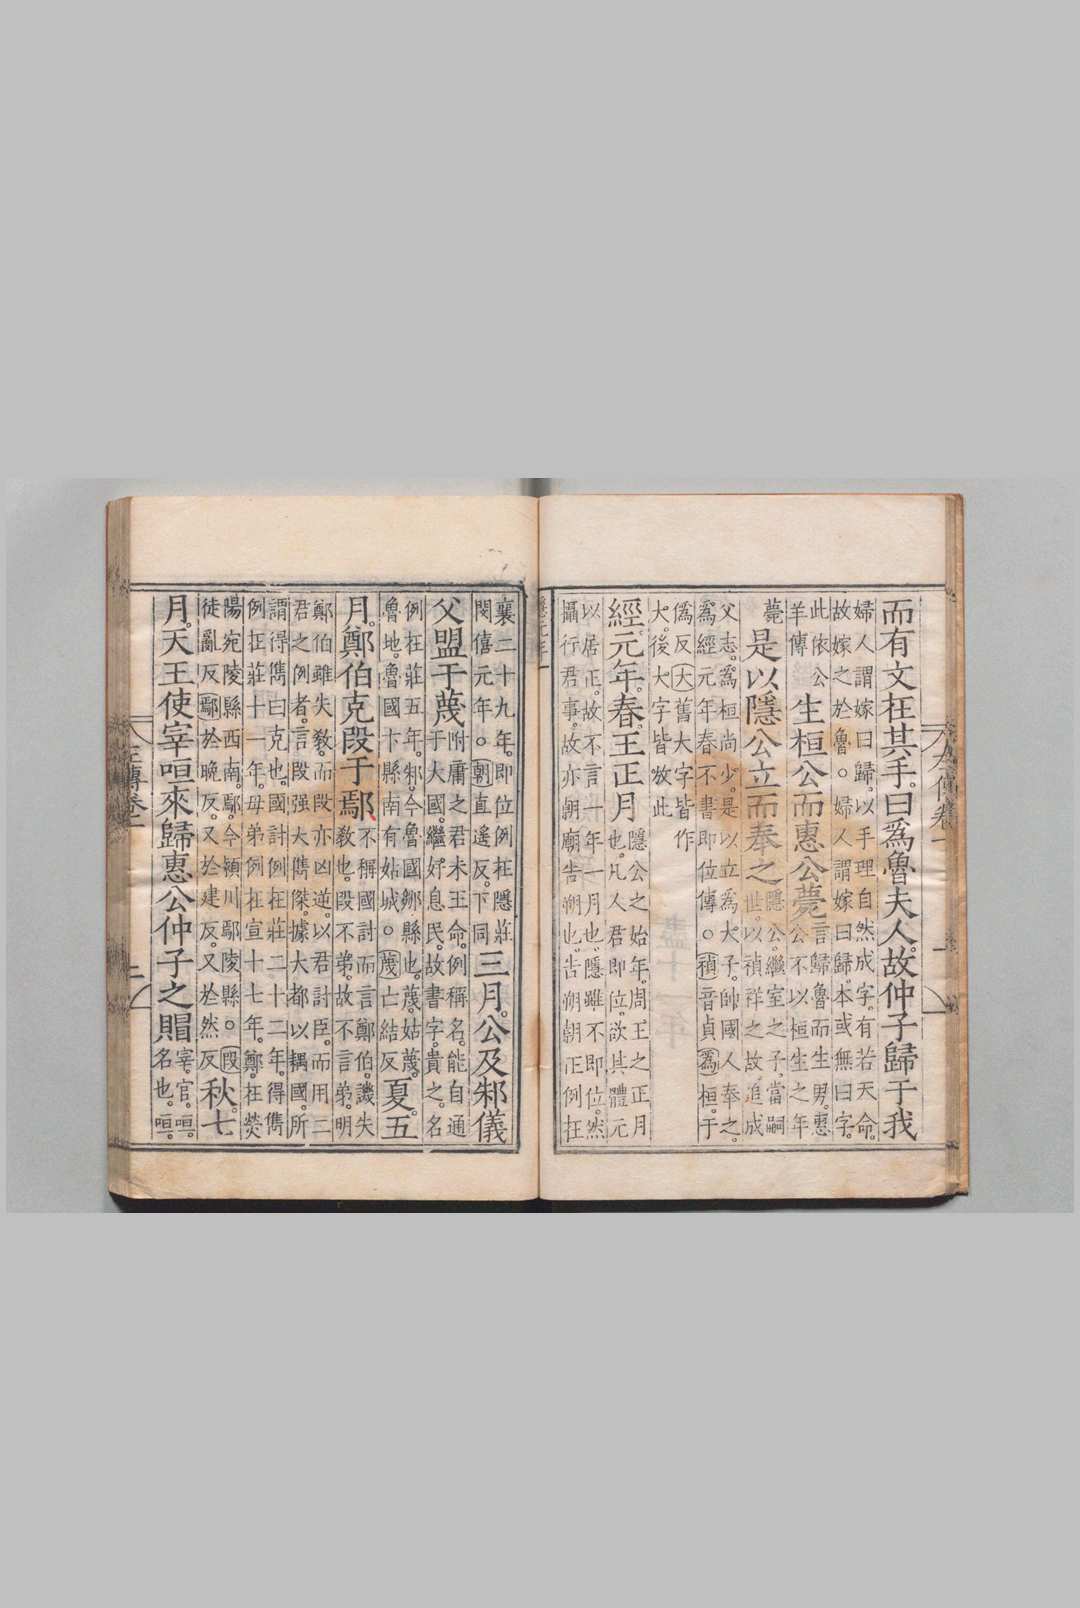 而有文在其手。曰爲魯夫人。故仲子歸于我
婦人謂嫁曰歸。以手理自然成字。有若天命。
故嫁之於魯。○婦人謂嫁曰歸。本或無曰字。
此依公
羊傳
生桓公而惠公薨
言歸魯而生男。惠
公不以桓生之年
薨
是以隱公立而奉之
隱公。繼室之子。當嗣
世。以禎祥之故。追成
父志。爲桓尚少。是以立爲大子。帥國人奉之。
爲經元年春不書即位傳。○禎音貞爲桓。于
僞反大舊大字皆作
大。後大字皆放此
經。元年。春。王正月
隱公之始年。周王之正月
也。凡人君即位。欲其體元
以居正。故不言一年一月也。隱雖不即位。然
攝行君事。故亦朝廟告朔也。告朔朝正例在
隱元年
襄二十九年。即位例在隱莊
閔僖元年。○朝直遙反。下同
三月。公及邾儀
父盟于蔑
附庸之君。未王命。例稱名。能自通
于大國。繼好息民。故書字。貴之。名
例在莊五年。邾。今魯國鄒縣也。蔑。姑蔑。
魯地。魯國卞縣南有姑城。○蔑亡結反
夏。五
月。鄭伯克段于鄢
不稱國討而言鄭伯。譏失
教也。段不弟。故不言弟。明
鄭伯雖失教。而段亦凶逆。以君討臣。而用二
君之例者。言段强大雋傑。據大都以耦國。所
謂得雋曰克也。國討例在莊二十二年。得雋
例在莊十一年。母弟例在宣十七年。鄭在滎
陽宛陵縣西南。鄢。今潁川鄢陵縣。○段
徒亂反鄢於晚反。又於建反。又於然反
秋。七
月。天王使宰咺來歸惠公仲子之賵
宰。官。咺。
名也。咺。
左傳卷一